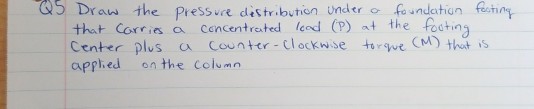 Q5 Draw the pressure distribution under a foundation footing
that carries a concentrated load (P) at the footing
Center plus a counter-clockwise torque (M) that is
applied on the column